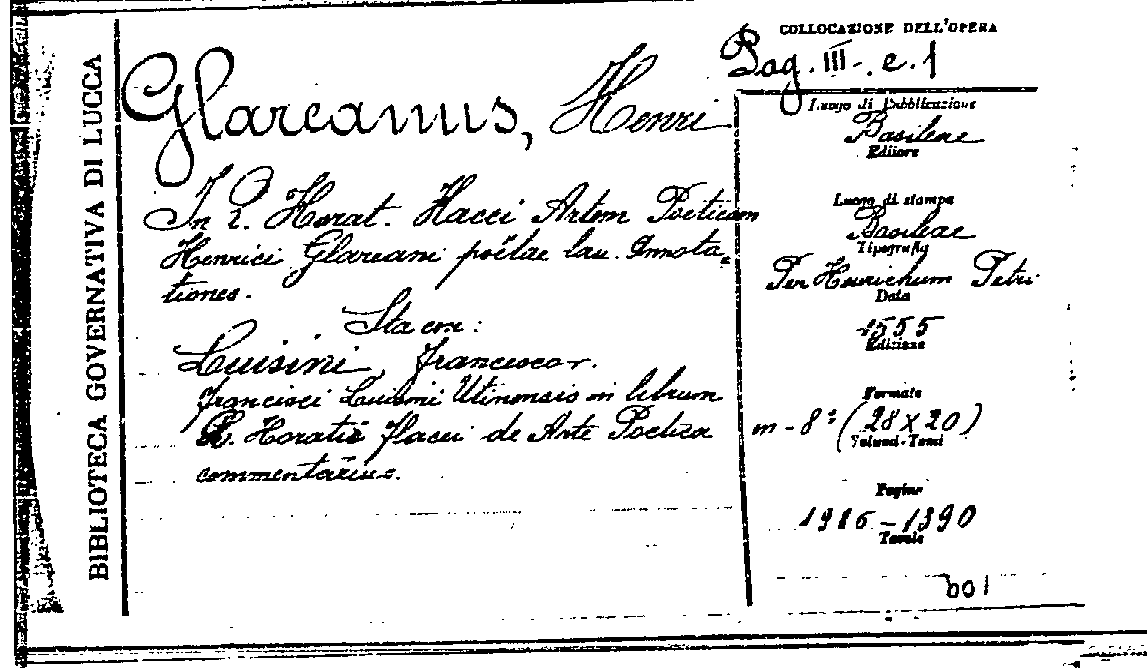 BIBLIOTECA GOVERNATIVA DI LUCCA
COLLOCAZIONE DELL'OPERA
Pag. III-. e. 1
Glareanus, Henri
In Q. Horat. Flacci Artem Poeticam
Henrici Glareani poëtae lau. Annota-
tiones.
Sta con:
Luisini, Francesco.
Francisci Luisini Utinensis in librum
Q. Horatii Flacci de Arte Poetica
commentarius.
Luogo di Pubblicazione
Basileae
Editore
Luogo di stampa
Basileae
Tipografia
Per Henrichum Petri
Data
1555
Edizione
Formato
in-8º (28 x 20)
Volumi-Tomi
Pagine
-1390
Tavole